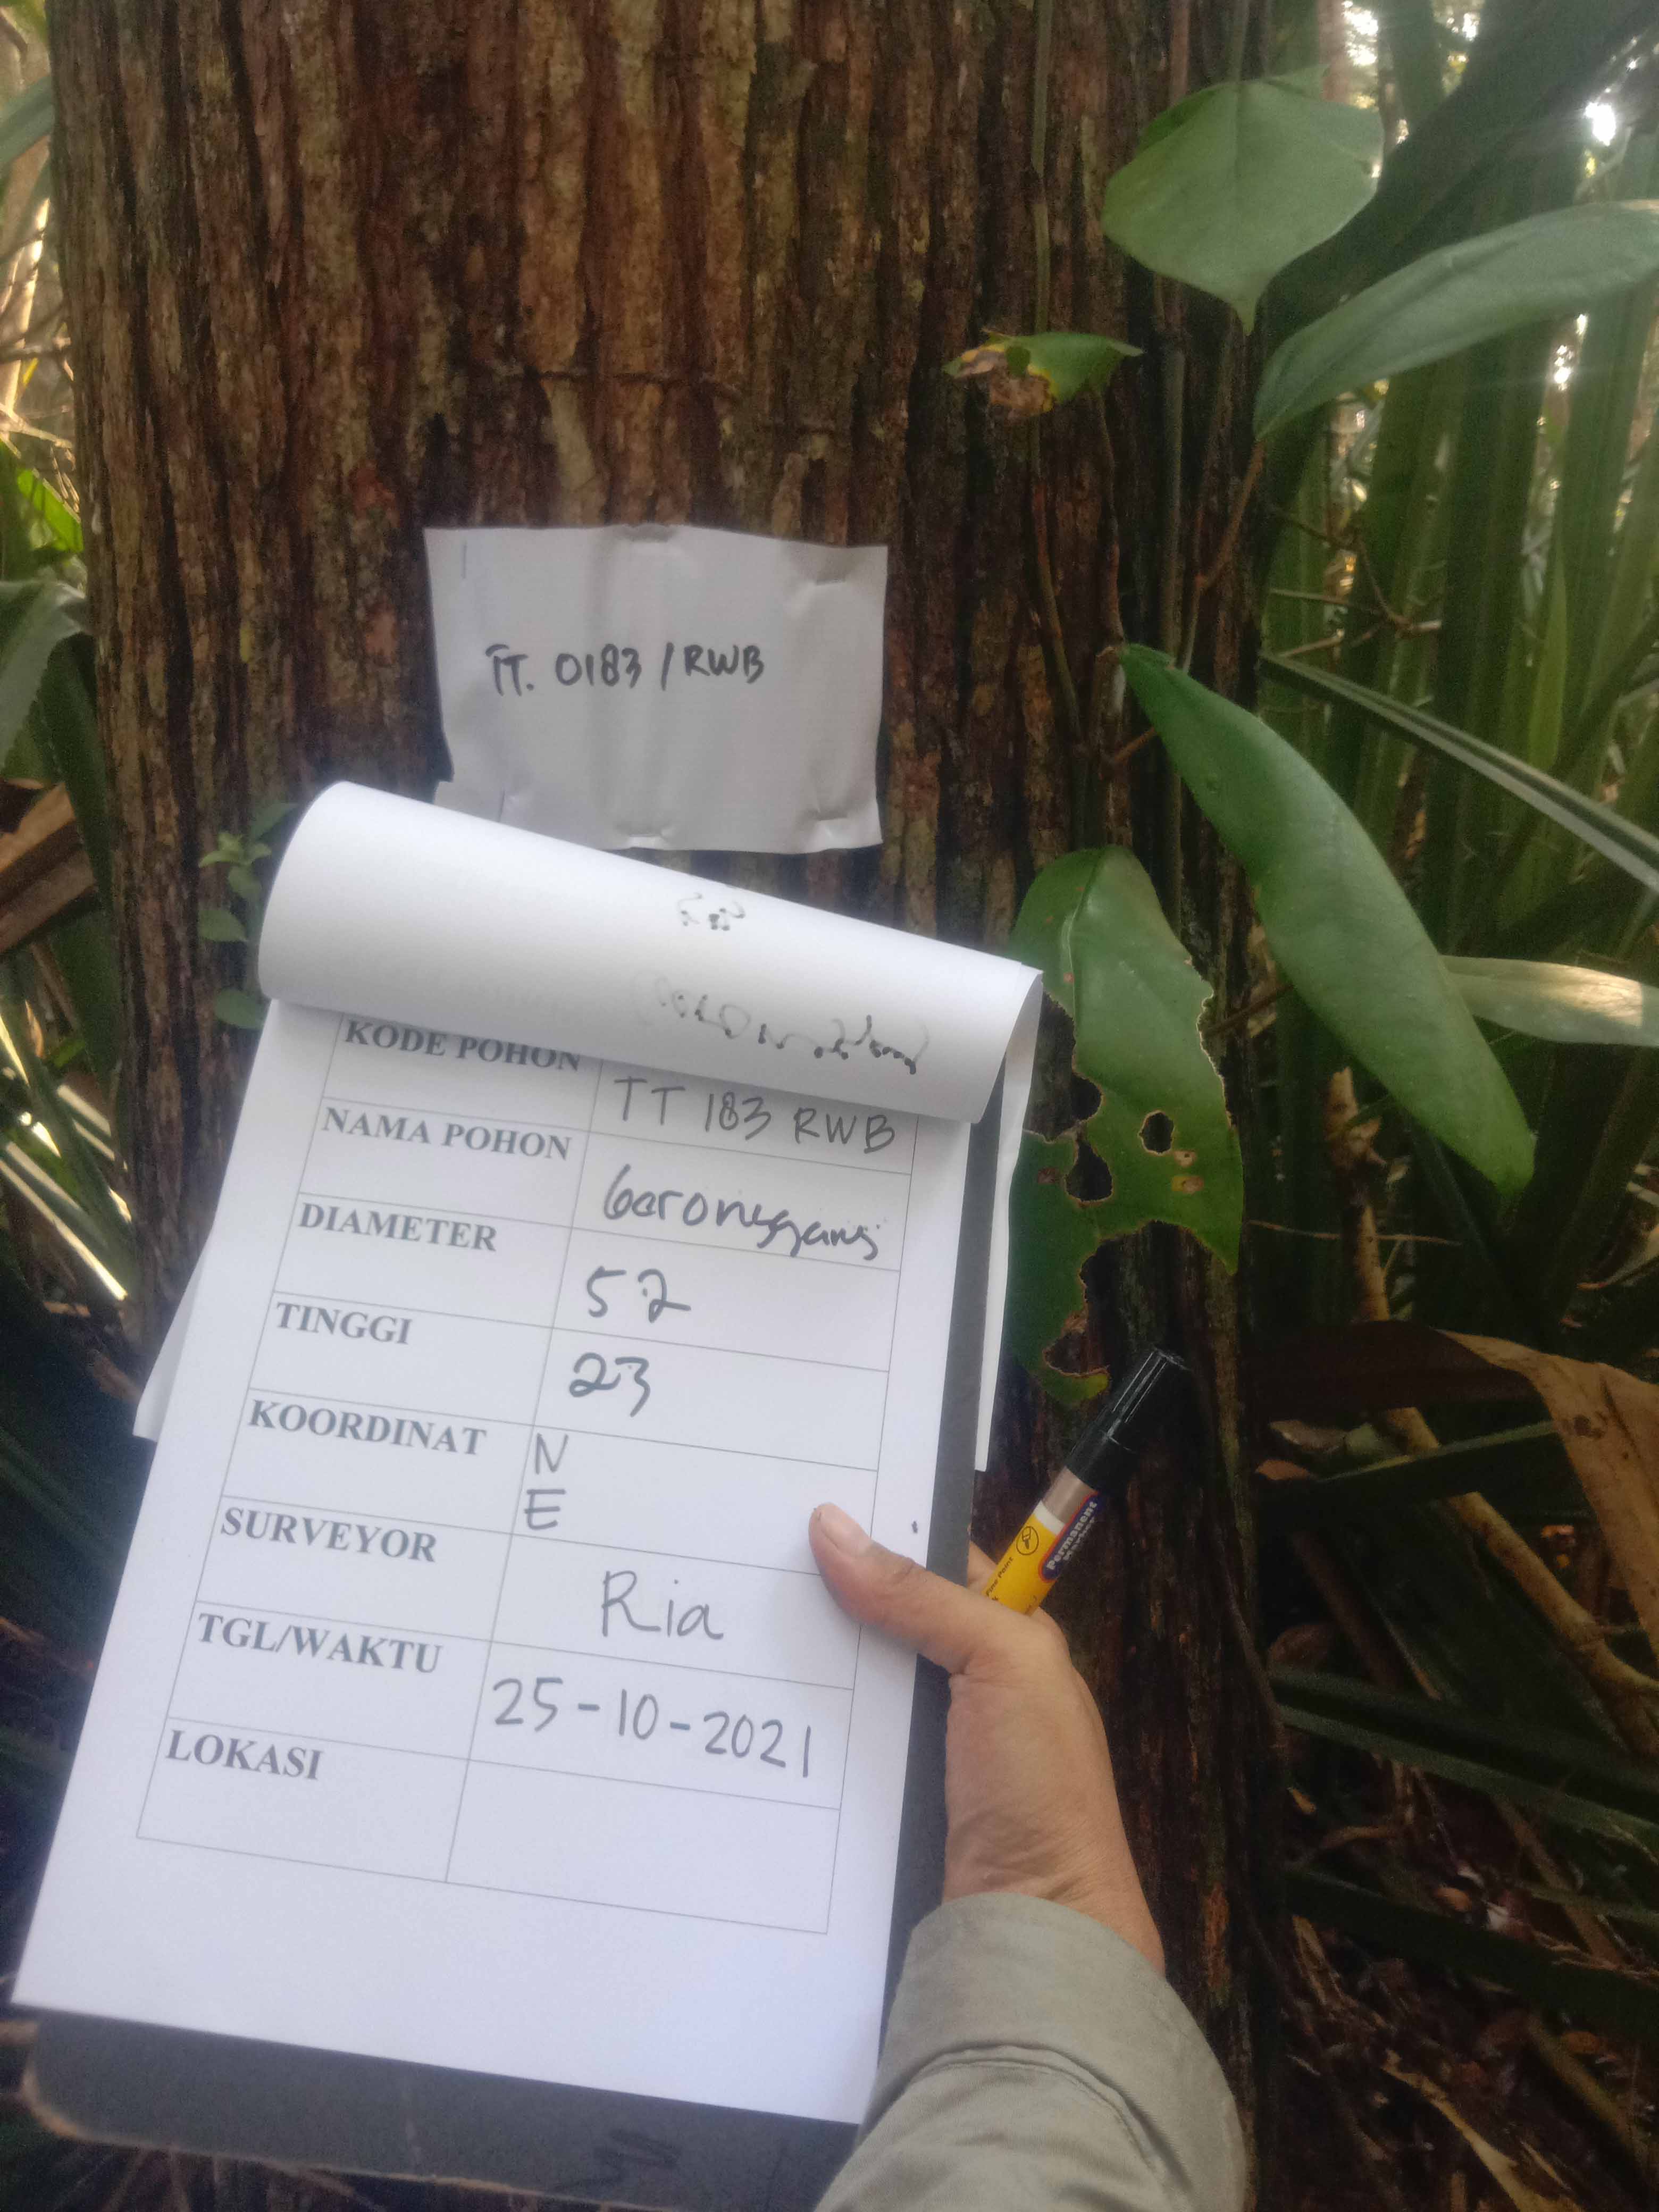 TT. 0183 / RWB
KODE POHON TT 183 RWB
NAMA POHON Geronggang
DIAMETER 52
TINGGI 23
KOORDINAT N
E
SURVEYOR Ria
TGL/WAKTU 25-10-2021
LOKASI
Permanent
Marker
Fine Point